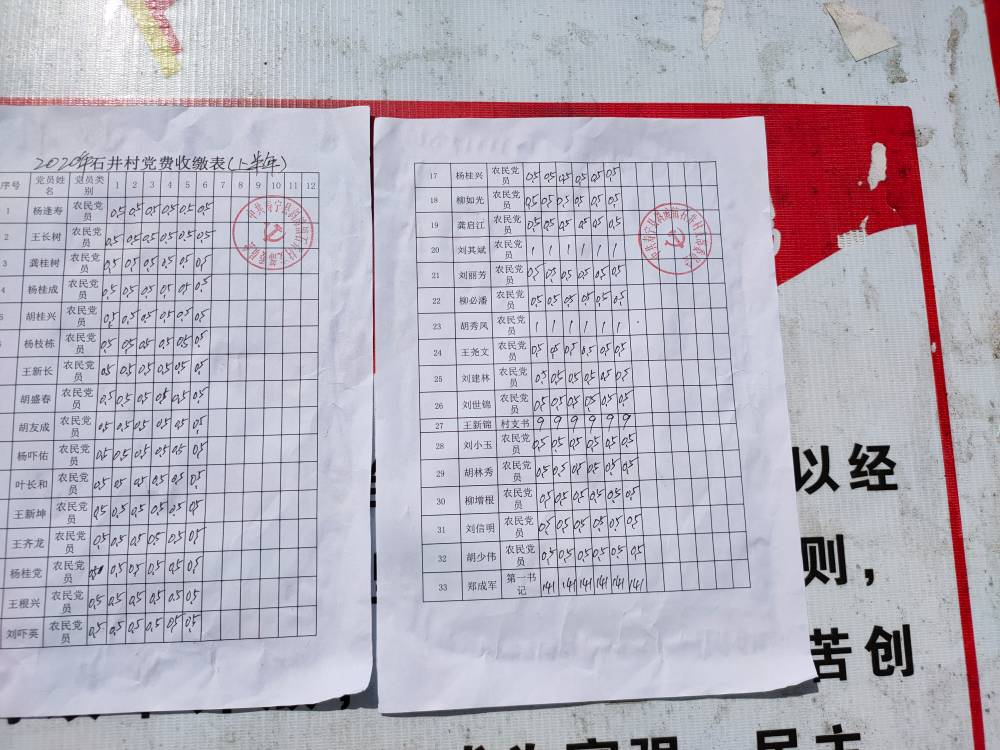 2020年石井村党费收缴表(上半年)
序号 党员姓名 党员类别 1 2 3 4 5 6 7 8 9 10 11 12
1 杨逢寿 农民党员 0.5 0.5 0.5 0.5 0.5 0.5
2 王长树 农民党员 0.5 0.5 0.5 0.5 0.5 0.5
3 龚桂树 农民党员 0.5 0.5 0.5 0.5 0.5 0.5
4 杨桂成 农民党员 0.5 0.5 0.5 0.5 0.5 0.5
5 胡桂兴 农民党员 0.5 0.5 0.5 0.5 0.5 0.5
杨枝栋 农民党员 0.5 0.5 0.5 0.5 0.5 0.5
王新长 农民党员 0.5 0.5 0.5 0.5 0.5 0.5
胡盛春 农民党员 0.5 0.5 0.5 0.5 0.5 0.5
胡友成 农民党员 0.5 0.5 0.5 0.5 0.5 0.5
杨吓佑 农民党员 0.5 0.5 0.5 0.5 0.5 0.5
叶长和 农民党员 0.5 0.5 0.5 0.5 0.5 0.5
王新坤 农民党员 0.5 0.5 0.5 0.5 0.5 0.5
王齐龙 农民党员 0.5 0.5 0.5 0.5 0.5 0.5
杨桂党 农民党员 0.5 0.5 0.5 0.5 0.5 0.5
王根兴 农民党员 0.5 0.5 0.5 0.5 0.5 0.5
刘吓英 农民党员 0.5 0.5 0.5 0.5 0.5 0.5
17 杨桂兴 农民党员 0.5 0.5 0.5 0.5 0.5 0.5
18 柳如光 农民党员 0.5 0.5 0.5 0.5 0.5 0.5
19 龚启江 农民党员 0.5 0.5 0.5 0.5 0.5 0.5
20 刘其斌 农民党员 1 1 1 1 1 1
21 刘丽芳 农民党员 0.5 0.5 0.5 0.5 0.5 0.5
22 柳必潘 农民党员 0.5 0.5 0.5 0.5 0.5 0.5
23 胡秀凤 农民党员 1 1 1 1 1 1
24 王尧文 农民党员 0.5 0.5 0.5 0.5 0.5 0.5
25 刘建林 农民党员 0.5 0.5 0.5 0.5 0.5 0.5
26 刘世锦 农民党员 0.5 0.5 0.5 0.5 0.5 0.5
27 王新锦 村支书 9 9 9 9 9 9
28 刘小玉 农民党员 0.5 0.5 0.5 0.5 0.5 0.5
29 胡林秀 农民党员 0.5 0.5 0.5 0.5 0.5 0.5
30 柳增根 农民党员 0.5 0.5 0.5 0.5 0.5 0.5
31 刘信明 农民党员 0.5 0.5 0.5 0.5 0.5 0.5
32 胡少伟 农民党员 0.5 0.5 0.5 0.5 0.5 0.5
33 郑成军 第一书记 141 141 141 141 141 141
以经
则，
苦创